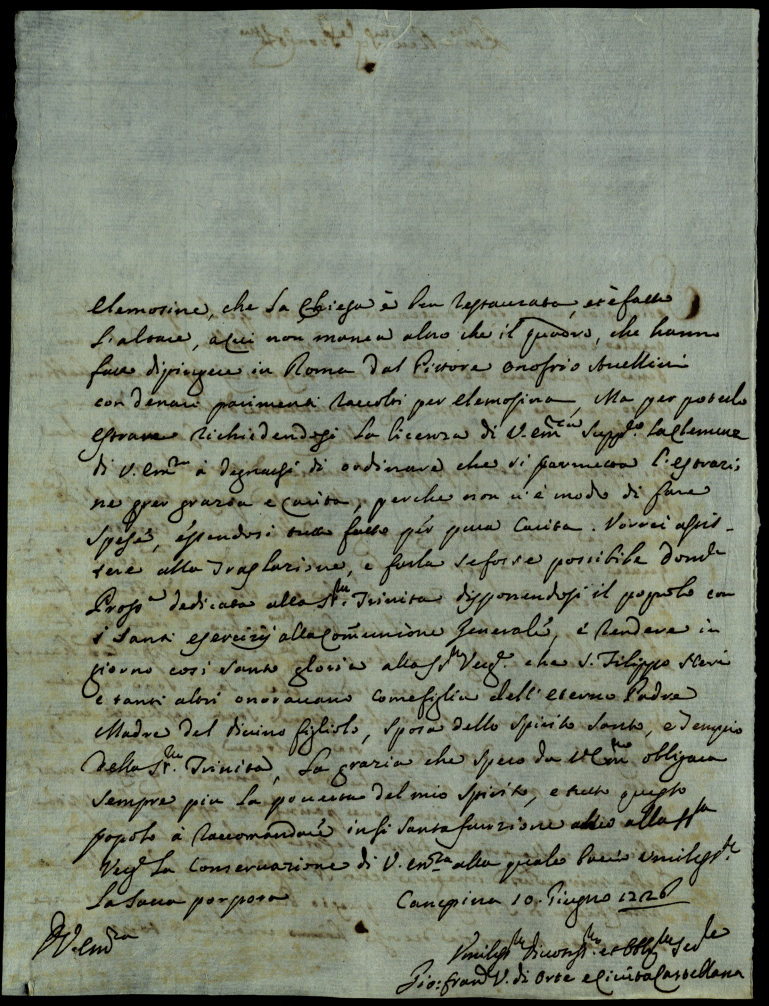 elemosine, che la Chiesa è ben restaurata, et è fatto
l'altare, a cui non manca altro che il quadro, che hanno
fatto dipingere in Roma dal Pittore Onofrio Avellini
con denari parimenti raccolti per elemosina, Ma per poterlo
estrarre richiedendosi la licenza di V. Em.za supp.co la Clemenza
di V. Em.za à degnarsi di ordinare che si permetta l'estrazio
ne per grazia e carità, perche non vi è modo di fare
spese, essendosi tutto fatto per pura Carità. Vorrei assis-
tere alla Traslazione, e farla se fosse possibile Dom.ca
Pross.a dedicata alla SS.ma Trinita disponendosi il popolo con
i Santi esercizij alla Com̃unione Generale, è rendere in
giorno così santo gloria alla SS.ma Verg.e che S. Filippo Neri
e tanti altri onoravano come figlia dell'eterno Padre
Madre del Divino figliolo, sposa dello Spirito Santo, e Tempio
della SS.ma Trinità, La grazia che spero da V. Em.za obligarà
sempre piu la povertà del mio spirito, e tutto questo
popolo à raccomandare in sì santa funzione alla SS.ma
Verg.e la Conservazione di V. Em.za alla quale bacio umiliss.te
la sacra porpora Canepina 10. Giugno 1726
D V. Em.za
Umiliss.mo Divotiss.mo et Obblig.mo Ser.re
Gio: Fran.co V. di Orte e Civita Castellana